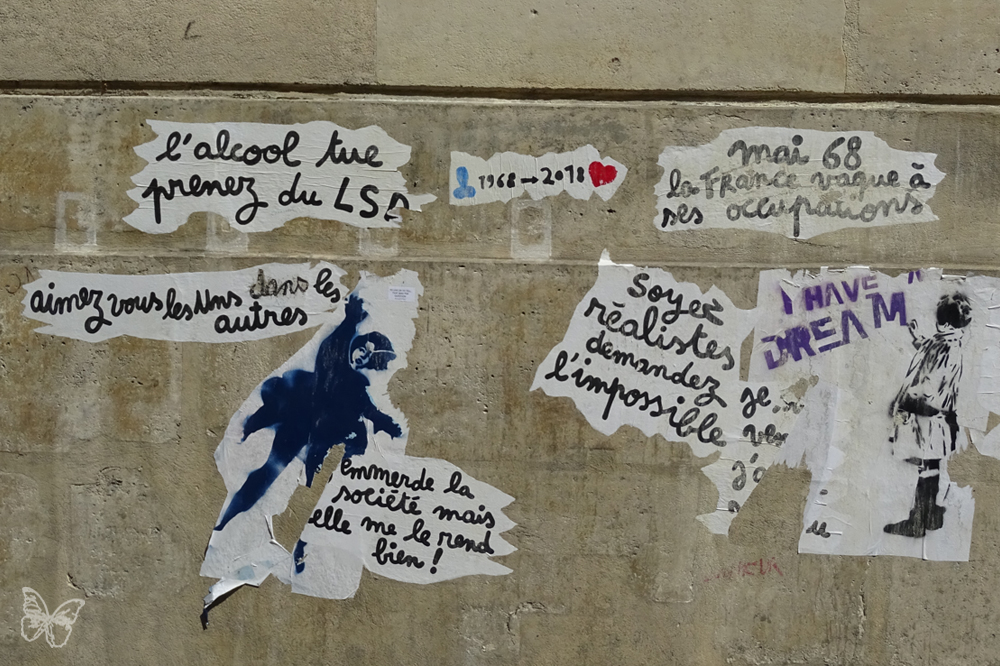 l'alcool tue
prenez du LSD
1968→2018
mai 68
la France vaque à
ses occupations
aimez vous les Uns dans les
autres
emmerde la
société mais
elle me le rend
bien !
Soyez
réalistes
demandez
l'impossible
je
j'a
I HAVE A
DREAM